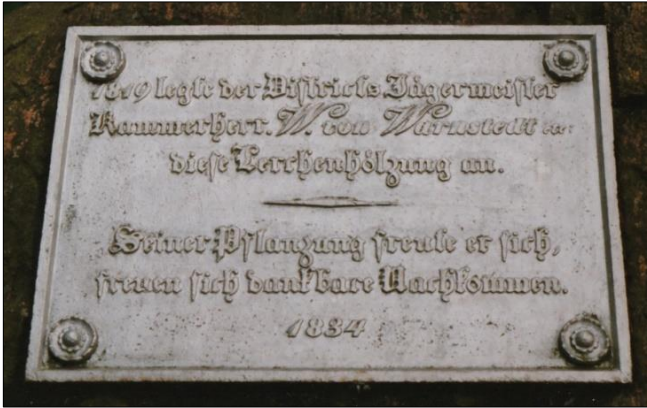 1819 legte der Districts Jägermeister
Kammerherr. W. von Warnstedt etc:
diese Lerchenhölzung an.
Seiner Pflanzung freute er sich,
freuen sich dankbare Nachkommen.
1834